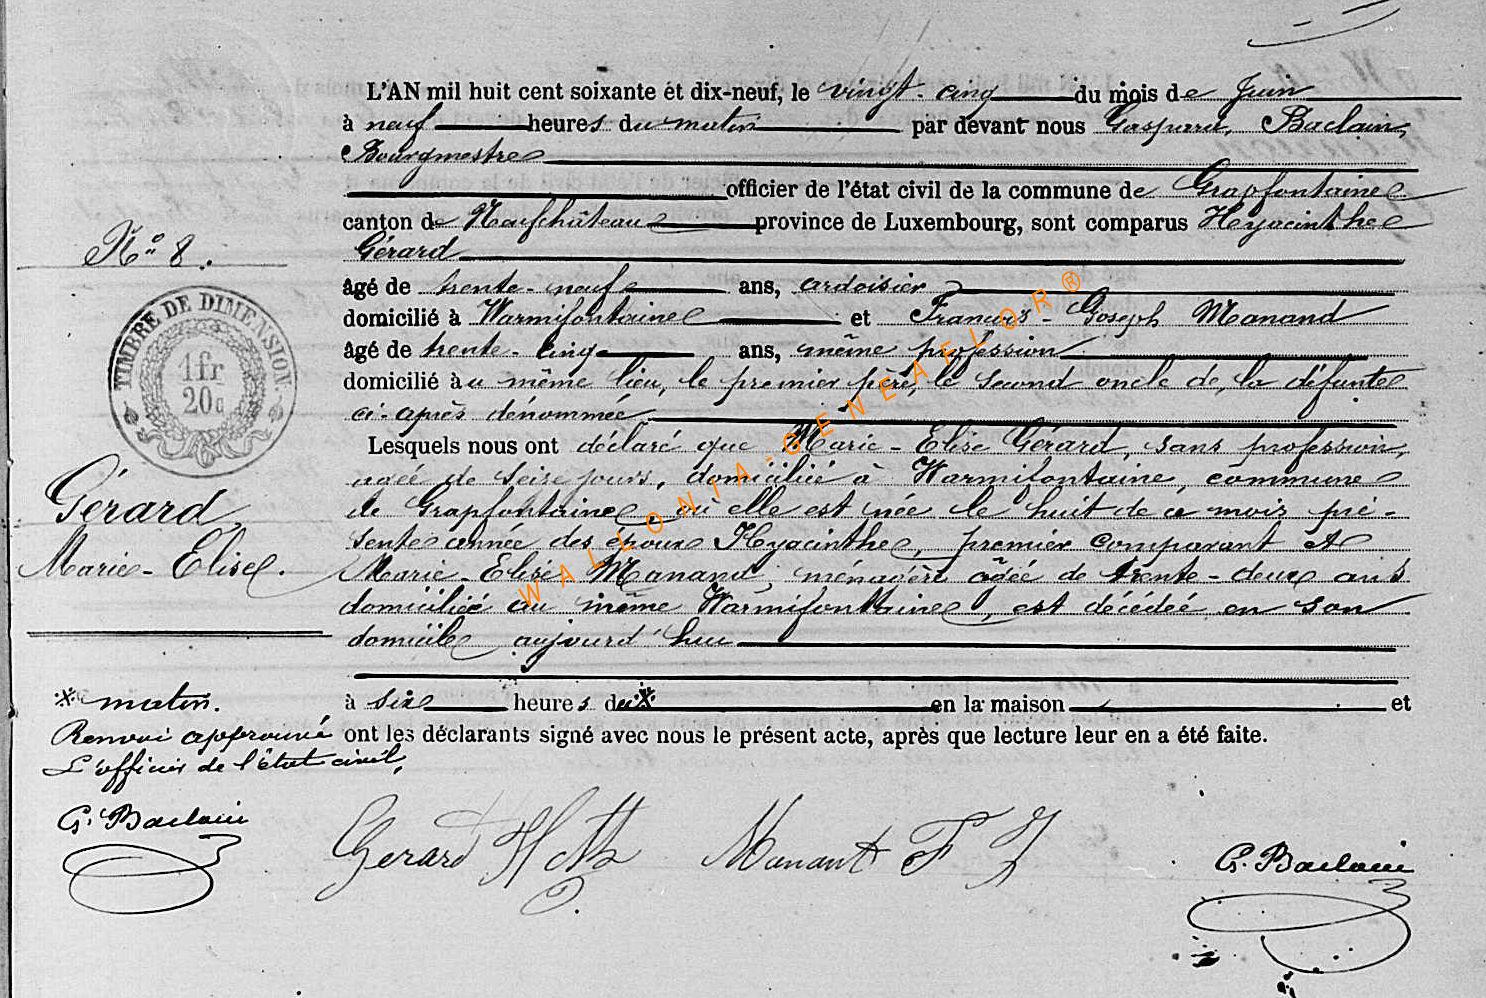 L'AN mil huit cent soixante et dix-neuf, le vingt-cinq du mois de Juin
à neuf heures du matin par devant nous Gaspard Baclain,
Bourgmestre
officier de l'état civil de la commune de Grapfontaine
canton de Neufchâteau province de Luxembourg, sont comparus Hyacinthe
Gérard
âgé de trente-neuf ans, ardoisier
domicilié à Warmifontaine et François-Joseph Manand
âgé de trente-cinq ans, même profession
domicilié au même lieu, le premier père, le second oncle de la défunte
ci-après dénommée
Lesquels nous ont déclaré que Marie-Elise Gérard, sans profession,
agée de seize jours, domiciliée à Warmifontaine, commune
de Grapfontaine, où elle est née le huit de ce mois pré-
sente année des époux Hyacinthe, premier comparant et
Marie-Elise Manand, ménagère âgée de trente-deux ans
domiciliée au même Warmifontaine, est décédée en son
domicile aujourd'hui
à six heures du * en la maison et
ont les déclarants signé avec nous le présent acte, après que lecture leur en a été faite.
N° 8.
TIMBRE DE DIMENSION.
1 fr
20 c
Gérard
Marie-Elise.
* matin.
Renvoi approuvé
L'officier de l'état civil,
G. Baclain
Gerard H Manant F J G. Baclain
WALLONIA-GENEAELOR®